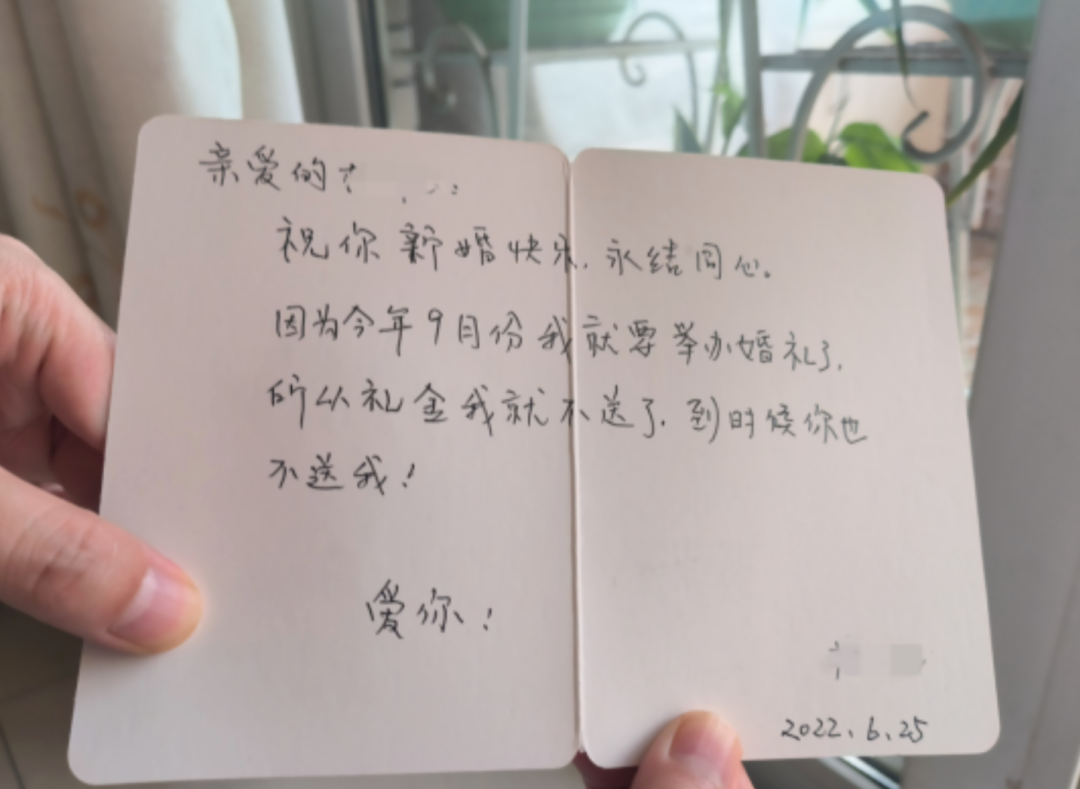 亲爱的
祝你新婚快乐,永结同心。
因为今年9月份我就要举办婚礼了,
所以礼金我就不送了,到时候你也
不送我!
爱你!
2022.6.25